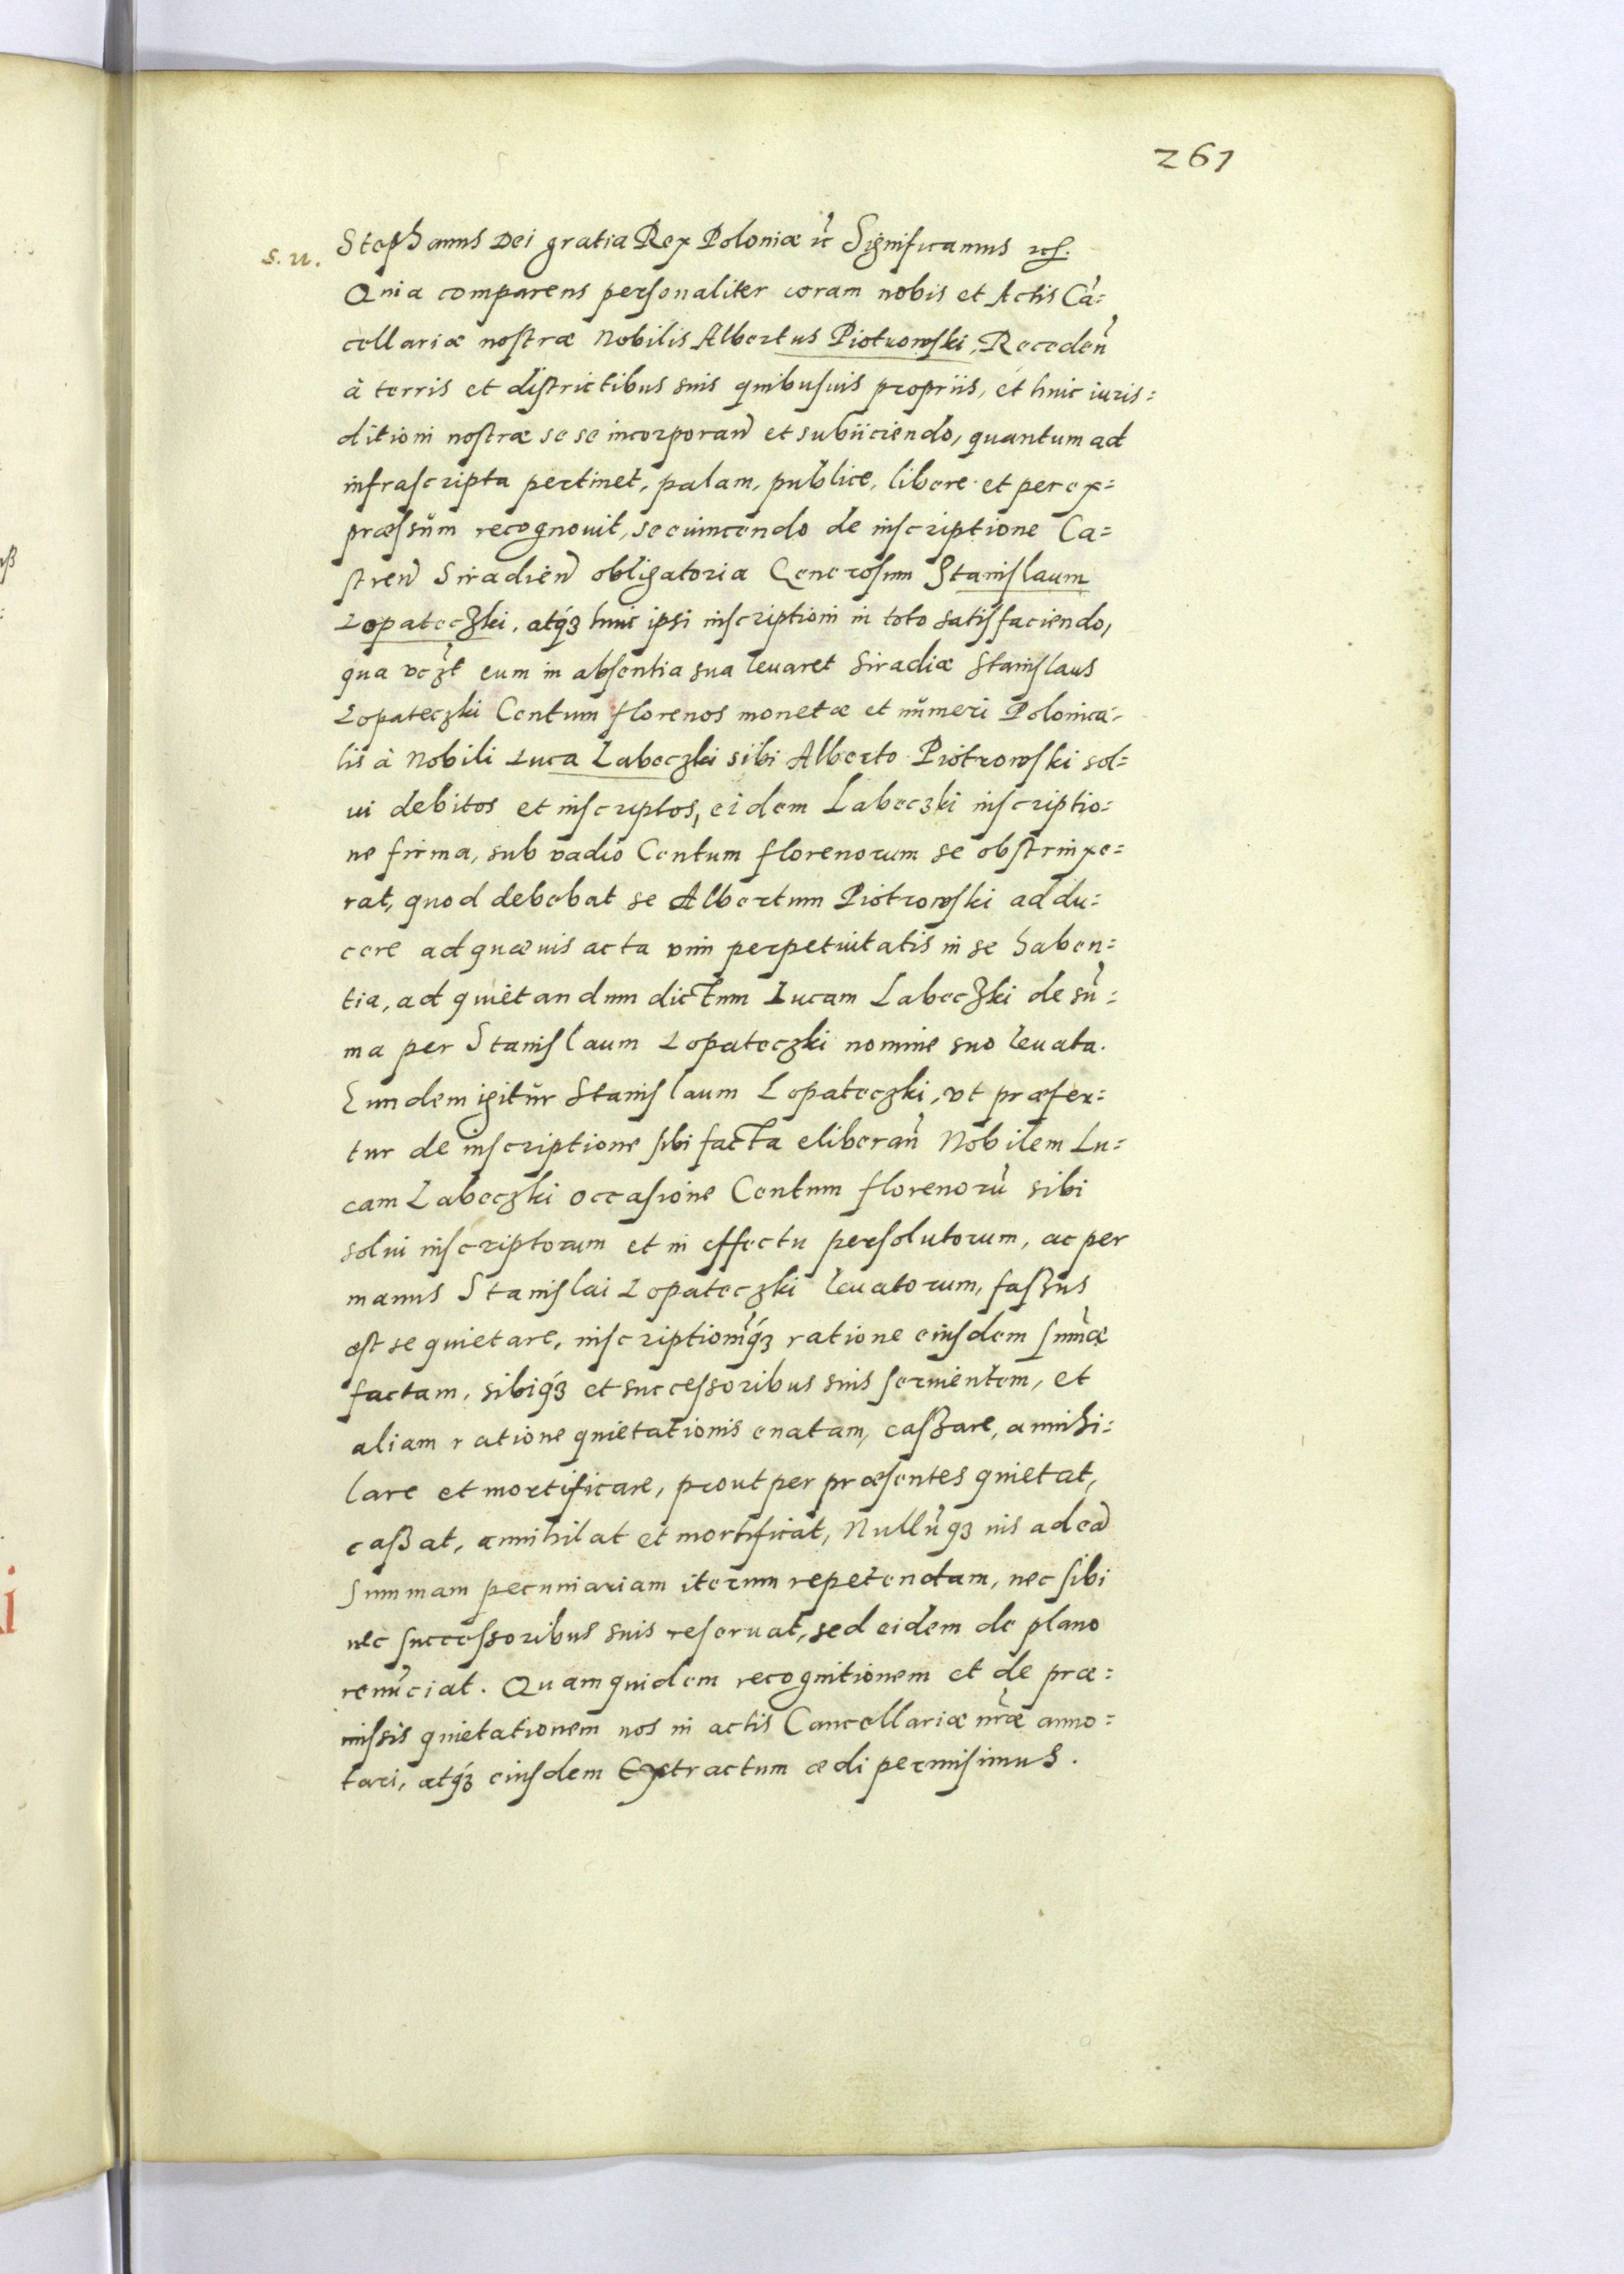 261
s. u. Stephanus Dei gratia Rex Poloniæ ẻc Significamus etc.
Quia comparens personaliter coram nobis et Actis Cã=
cellariæ nostræ Nobilis Albertus Piotrowski, Receden̄
à terris et districtibus suis quibusuis propriis, et huic iuris=
ditioni nostræ se se incorporan̄ et subiiciendo, quantum ad
infrascripta pertinet, palam, publice, libere et per ex=
præssum recognouit, se euincendo de inscriptione Ca=
stren̄ Siradien̄ obligatoria Generosum Stanislaum
Lopateczki, atq́ꝫ huic ipsi inscriptioni in toto satisfaciendo,
qua vcꝫt eum in absentia sua leuaret Siradiæ Stanislaus
Lopateczki Centum florenos monetæ et numeri Polonica=
lis à Nobili Luca Labeczki sibi Alberto Piotrowski sol=
ui debitos et inscriptos, eidem Labeczki inscriptio=
ne firma, sub vadio Centum florenorum se obstrinxe=
rat, quod debebat se Albertum Piotrowski addu=
cere ad quæuis acta vim perpetuitatis in se haben=
tia, ad quietandum dictum Lucam Labeczki de sũ=
ma per Stanislaum Lopateczki nomine suo leuata.
Eundem igitur Stanislaum Lopateczki, vt præfer=
tur de inscriptione sibi facta eliberan̄ Nobilem Lu=
cam Labeczki occasione Centum florenorũ sibi
solui inscriptorum et in effectu persolutorum, ac per
manus Stanislai Lopateczki leuatorum, faßus
est se quietare, inscriptionẽq́ꝫ ratione eiusdem sum̃æ
factam, sibiq́ꝫ et successoribus suis seruientem, et
aliam ratione quietationis enatam, caßare, annihi=
lare et mortificare, prout per præsentes quietat,
caßat, annihilat et mortificat, Nullũqꝫ ius ad eā
summam pecuniariam iterum repetendam, nec sibi
nec successoribus suis reseruat, sed eidem de plano
renũciat. Quamquidem recognitionem et de præ=
missis quietationem nos in actis Cancellariæ nr̃æ anno=
tari, atq́ꝫ eiusdem Extractum ædi permisimus.